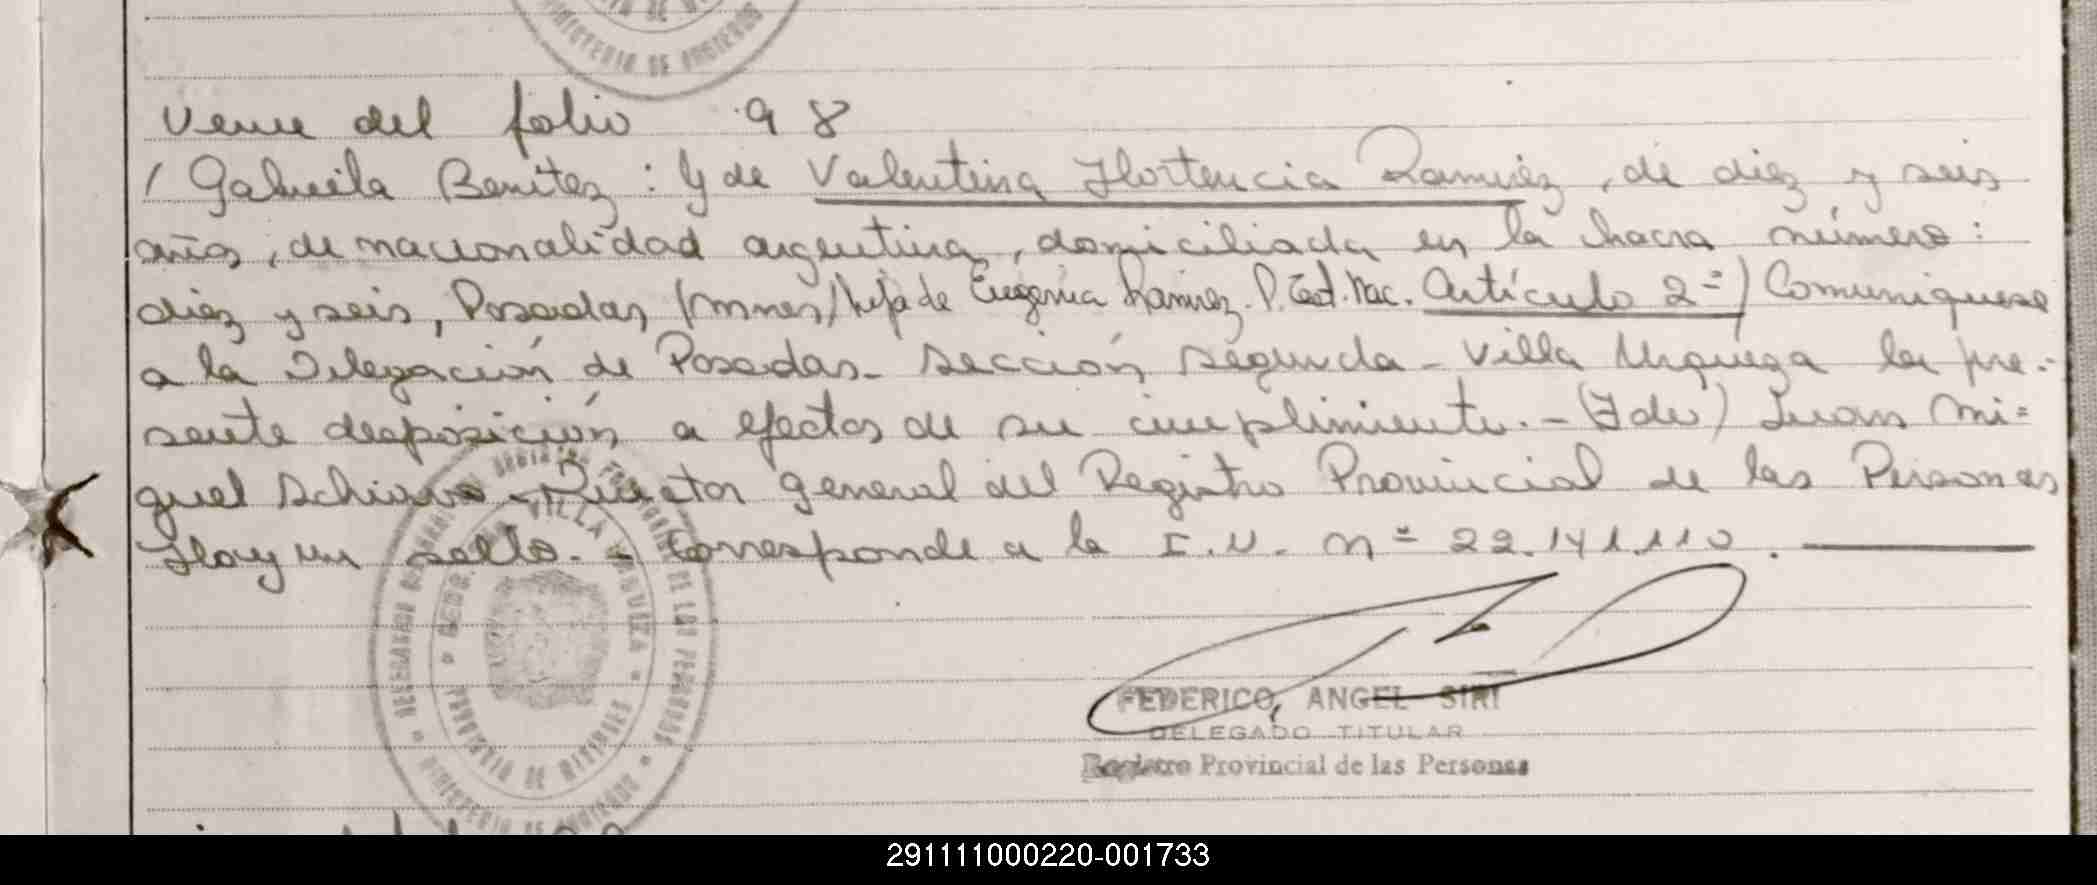 MINISTERIO DE GOBIERNO
Viene del folio 98
/ Gabriela Benítez: Y de Valentina Hortencia Ramírez, de diez y seis
años, de nacionalidad argentina, domiciliada en la chacra número:
diez y seis, Posadas, (mnes) hija de Eugenia Ramirez. P. Test. Nac. Artículo 2º) Comuniquese
a la Delegación de Posadas - Sección segunda - Villa Urquiza la pre-
sente desposición a efectos de su cumplimiento. - (Fdo) Juan Mi=
guel Schiavo - Director general del Registro Provincial de las Personas
Hay un sello. - Corresponde a la I.N. nº 22.141.110.
VILLA URQUIZA
PROVINCIA DE MISIONES
MINISTERIO DE GOBIERNO
FEDERICO ANGEL SIRI
DELEGADO TITULAR
Registro Provincial de las Personas
291111000220-001733